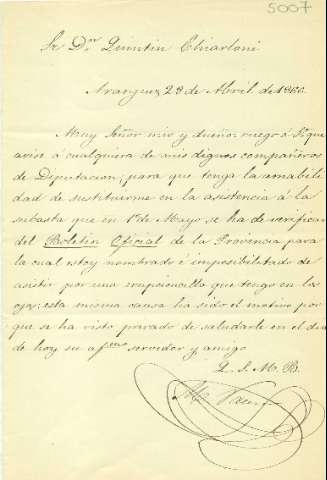 5007
Sr Dn Quintin Chiarloni
Aranjuez 29 de Abril de 1866.
Muy Señor mio y dueño: ruego á V. que
avise á cualquiera de mis dignos compañeros
de Diputacion, para que tenga la amabili-
dad de sustituirme en la asistencia á la
subasta que en 1º de Mayo se ha de verificar
del Boletin Oficial de la Provincia para
la cual estoy nombrado é imposibilitado de
asistir por una erupcioncilla que tengo en los
ojos; esta misma causa ha sido el motivo por
que se ha visto privado de saludarle en el dia
de hoy su afmo servidor y amigo
Q. S. M. B.